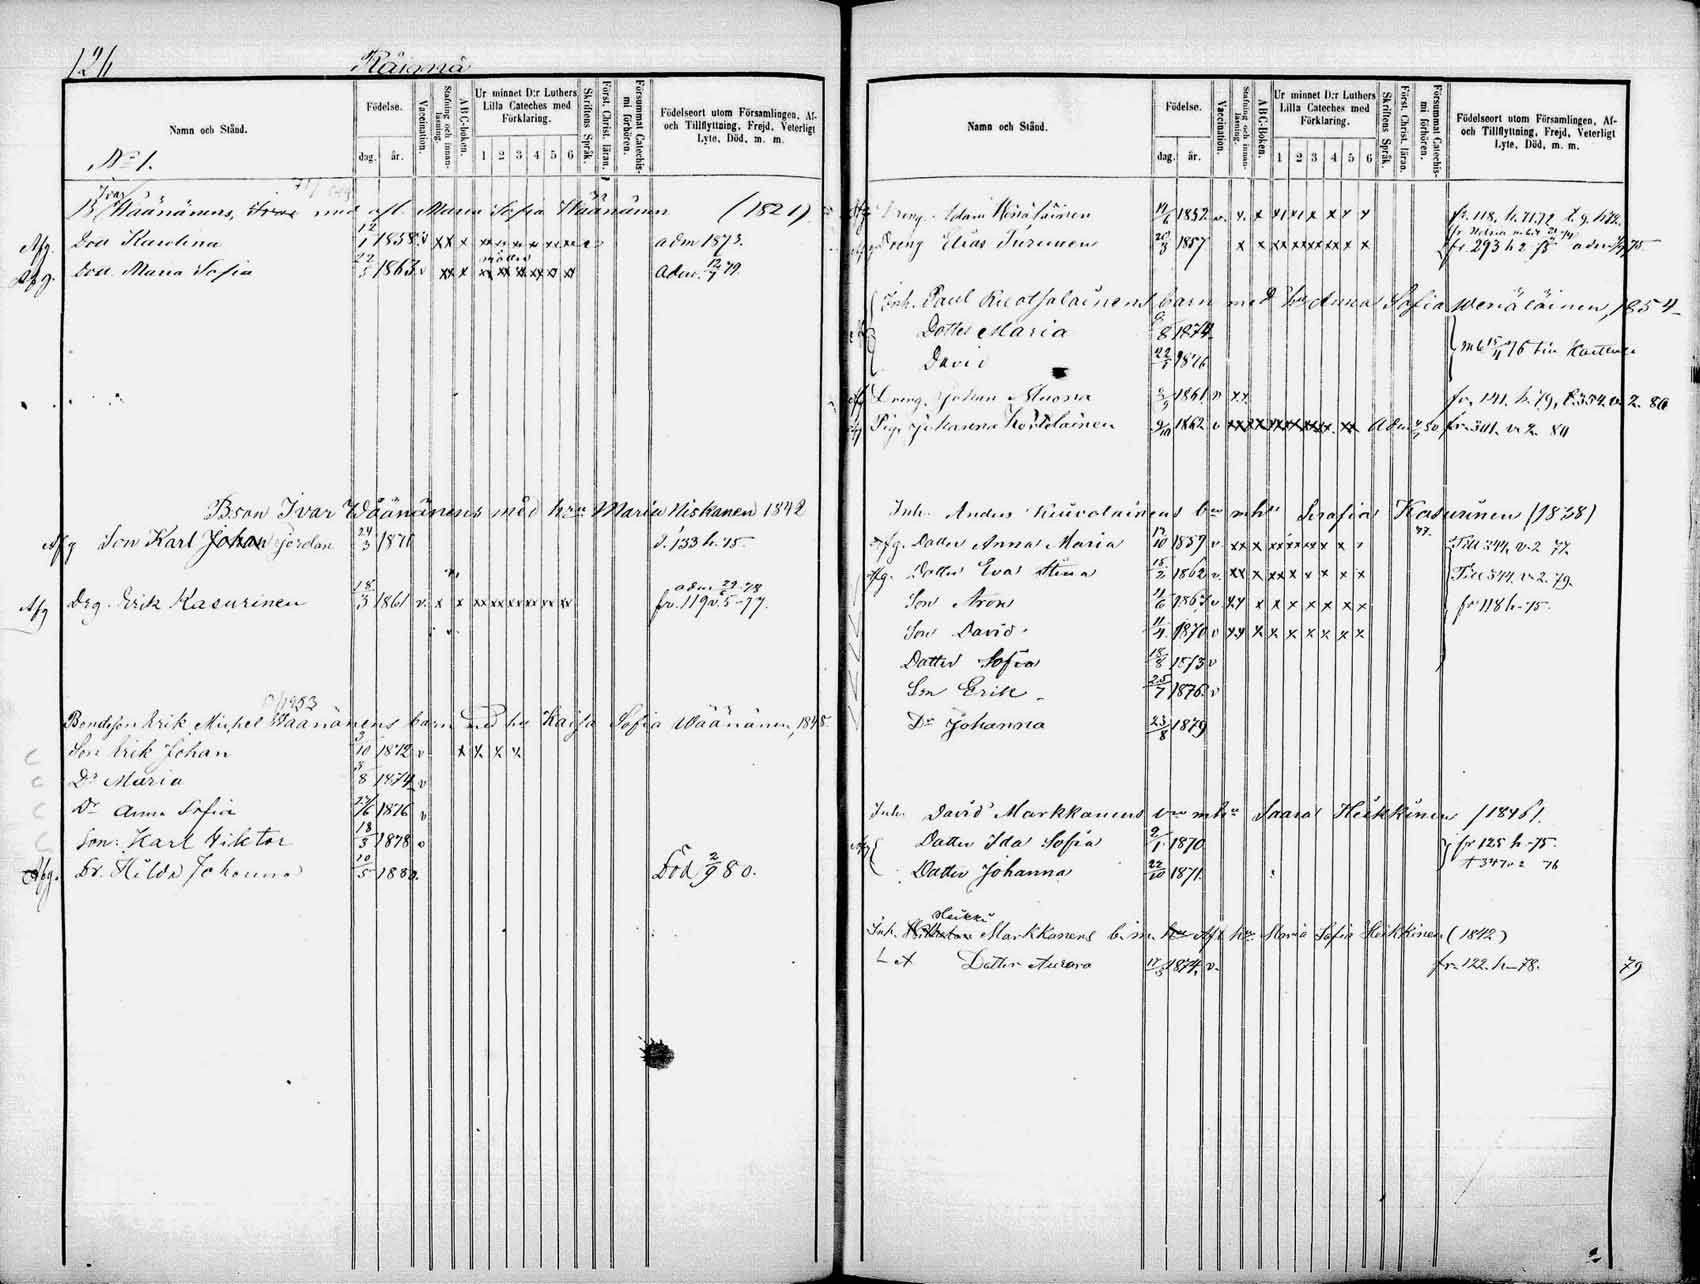 126
Räimä
Namn och Stånd.
Födelse.
dag.
år.
Vaccination.
Stafning och innan-läsning.
ABC-boken.
Ur minnet D:r Luthers Lilla Cateches med Förklaring.
1 2 3 4 5 6
Skriftens Språk.
Först. Christ. läran.
Försummat Catechis-mi förhören.
Födelseort utom Församlingen, Af- och Tillflyttning, Frejd, Veterligt Lyte, Död, m. m.
No 1.
Ivar
B Wäänänens, med afl. Maria Sofia Wäänänen (1821)
Afg. Dott Karolina 12/1 1858 v xx x xx xx xx xx xx adm 1873.
Afg. Dott. Maria Sofia 22/5 1863 v xx x xx xx xx xx xx adm. 12/7 79.
Bson Ivar Wäänänens med hru Maria Niskanen 1842
Afg Son Karl Johan Jordan 24/3 1871 t. 133 h. 75.
adm. 29-78
Afg Drg. Erik Kasurinen 18/3 1861 v. x x xx xx xx xx xx fr. 119 v. 5-77.
Bondeson Erik Michel Wäänänens barn med hu Kaisa Sofia Wäänänen, 1848
Son Erik Johan 3/10 1872 v x x x x
Dr Maria 5/8 1874 v
Dr Anna Sofia 27/6 1876 v
Son: Karl Viktor 18/3 1878 v
Afg. Dr. Hilda Johanna 10/5 1880. Död 2/9 80.
Namn och Stånd.
Födelse.
dag.
år.
Vaccination.
Stafning och innan-läsning.
ABC-boken.
Ur minnet D:r Luthers Lilla Cateches med Förklaring.
1 2 3 4 5 6
Skriftens Språk.
Först. Christ. läran.
Försummat Catechis-mi förhören.
Födelseort utom Församlingen, Af- och Tillflyttning, Frejd, Veterligt Lyte, Död, m. m.
Dreng Adam Wenäläinen 1852 v. x. x x x x x x x fr. 118, h. 71.72
Dreng Elias Turunen 20/3 1857 x x xx xx xx xx x fr. 293 h 2 75
Inh. Paul Ruotsalainens barn med hu Anna Sofia Wenäläinen, 1854
Dotter Maria 9/8 1874
David 22/5 1876
Dreng. Johan Muona 1861 v xx fr. 141. h. 79, t. 354. v. 2. 80
Pig. Johanna 9/10 1862 v xx xx xx xx xx xx fr. 301. v. 2. 80
Inh. Anders Kuivalainens bn mhu Serafia Kasurinen (1838)
Afg. Dotter Anna Maria 13/10 1859 v xx x x x x x x Till 344, v. 2 77.
Afg. Dotter Eva Stina 15/2 1862 v. xx x xx x x x x Till 344. v. 2. 79.
Son Aron 4/6 1867 v xx x x x x x x fr 118 h-75.
Son David 11/4 1870 v xx x x x x x x
Dotter Sofia 18/8 1873 v
Son Erik 25/7 1876 v
Dr Johanna 23/8 1879
Inh. David Markkanens bn mhu Saara Heikkinen /1846/.
Dotter Ida Sofia 2/1 1870 fr 125 h-75.
Dotter Johanna 22/10 1871 t 347 v 2 76
Heikki
Inh. Markkanens b. m. Afl hu Maria Sofia Heikkinen (1842)
Dotter Aurora 17/3 1874 v. fr. 122. h-78. 79